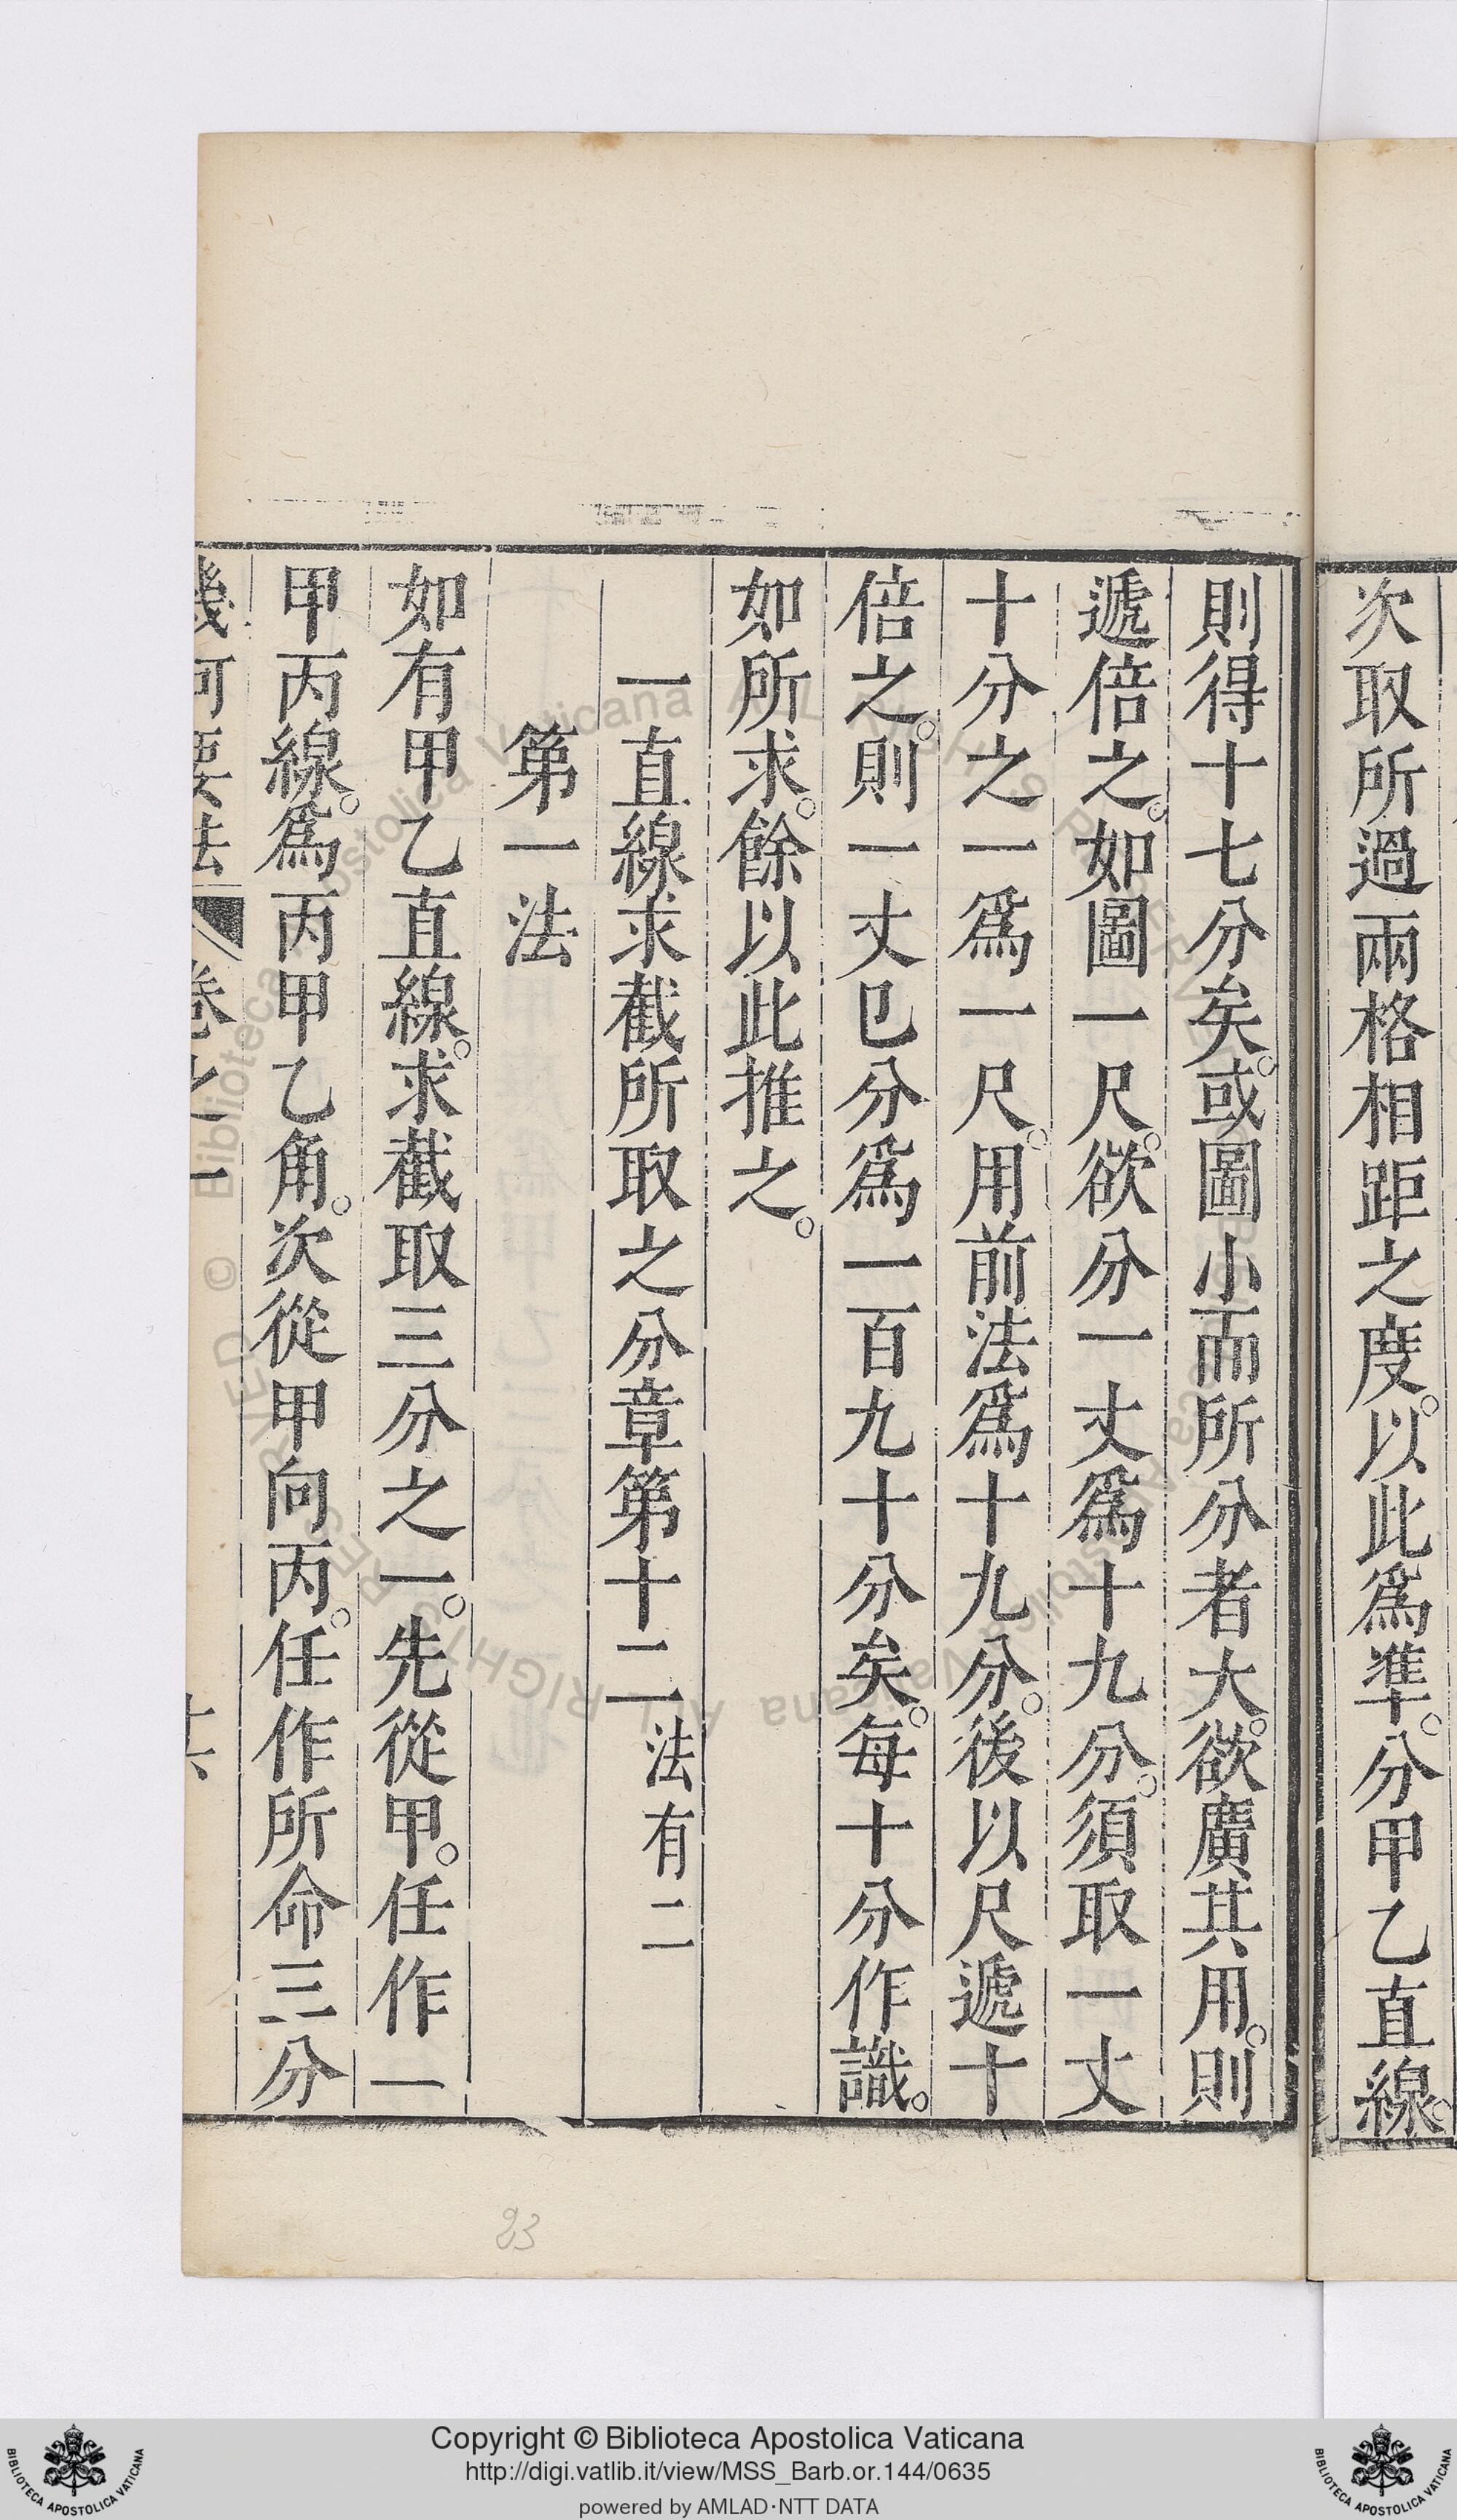 次取所過兩格相距之度。以此爲準。分甲乙直線。
則得十七分矣。或圖小而所分者大。欲廣其用。則
遞倍之。如圖一尺。欲分一丈爲十九分。須取一丈
十分之一爲一尺。用前法爲十九分。後以尺遞十
倍之。則一丈已分爲一百九十分矣。每十分作識。
如所求。餘以此推之。
一直線求截所取之分章第十二 法有二
第一法
如有甲乙直線。求截取三分之一。先從甲。任作一
甲丙線。爲丙甲乙角。次從甲向丙。任作所命三分
幾何要法 卷之一
23
Copyright © Biblioteca Apostolica Vaticana
http://digi.vatlib.it/view/MSS_Barb.or.144/0635
powered by AMLAD·NTT DATA
BIBLIOTECA APOSTOLICA VATICANA
BIBLIOTECA APOSTOLICA VATICANA